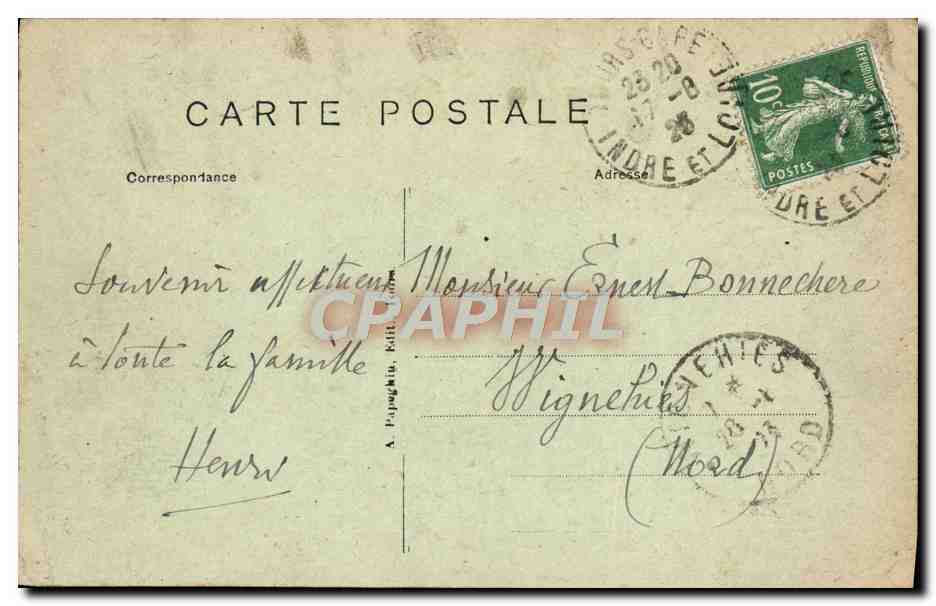 CARTE POSTALE
Correspondance
Adresse
TOURS-GARE
23 20
INDRE ET LOIRE
REPUBLIQUE FRANCAISE
10c
POSTES
INDRE ET LOIRE
Souvenir affectueux
à toute la famille
Henri
A. Papeghin, Edit. Tours
Monsieur Ernest Bonnechere
Wignehies
(Nord)
WIGNEHIES
NORD
CPAPHIL